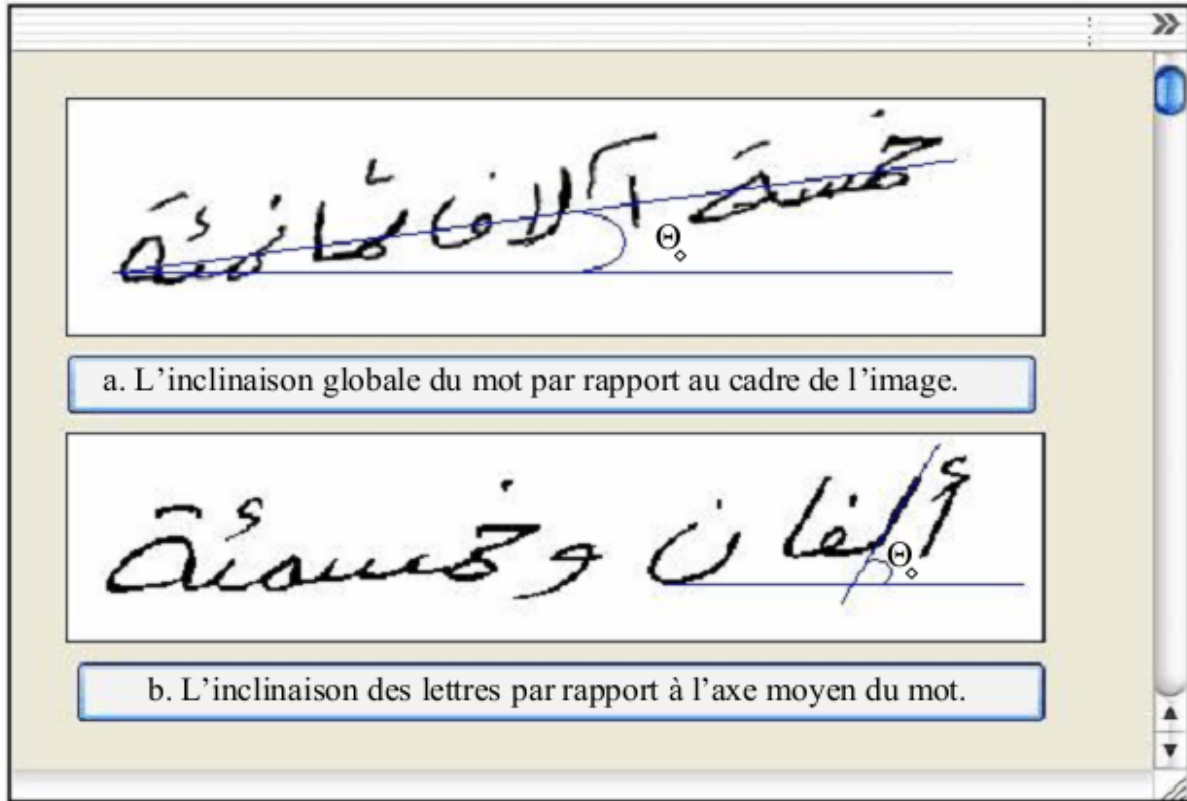 خمسة آلاف ثمانمئة
Θ
a. L’inclinaison globale du mot par rapport au cadre de l’image.
ألفان وخمسمئة
Θ
b. L’inclinaison des lettres par rapport à l’axe moyen du mot.